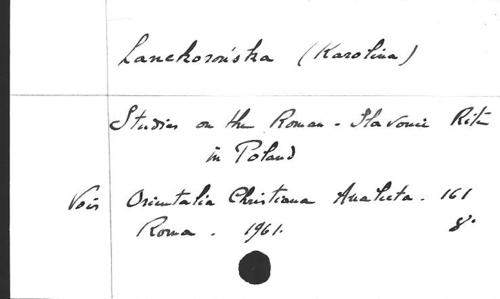 Lanckorońska (Karolina)
Studies on the Roman-Slavonic Rite
in Poland
Voir Orientalia Christiana Analecta. 161
Roma. 1961. 8°